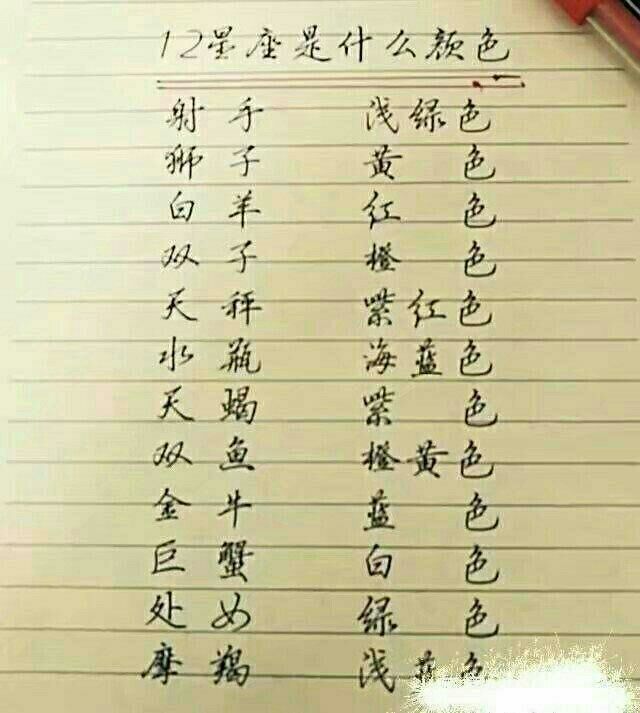 12星座是什么颜色
射手 浅绿色
狮子 黄色
白羊 红色
双子 橙色
天秤 紫红色
水瓶 海蓝色
天蝎 紫色
双鱼 橙黄色
金牛 蓝色
巨蟹 白色
处女 绿色
摩羯 浅蓝色